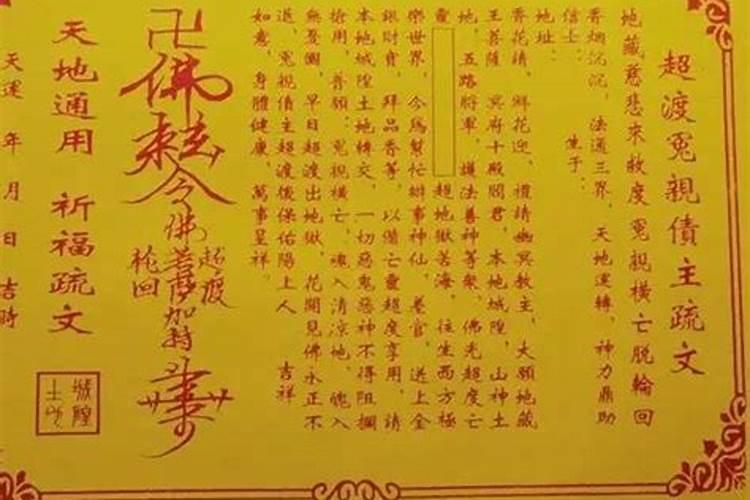 超渡冤親債主疏文
地藏慈悲來救度 冤親橫亡脫輪回
香烟沉沉，法通三界，天地運轉，神力鼎助
信士： 生于：
地址：
香花請，鮮花迎，禮請幽冥教主，大願地藏
王菩薩 冥府十殿閻君，本地城隍，山神土
地，五路將軍，護法善神等衆，佛光超度亡
靈 超地獄苦海，往生西方極
樂世界，今爲幫忙辦事神仙，差官，送上金
銀財寶，拜品香等，以備亡靈超度享用，請
本地城隍土地轉交，一切惡鬼惡神不得阻攔
搶用，普願：冤親橫亡，魂入清凉地，魄入
無憂國，早日超渡出地獄，花開見佛永正不
退，冤親債主超渡後保佑陽上人 吉祥
如意，身體健康，萬事呈祥
卍佛
令佛菩薩加持
超渡
輪回
天地通用 祈福疏文
城隍
土地
天運 年 月 日 吉時